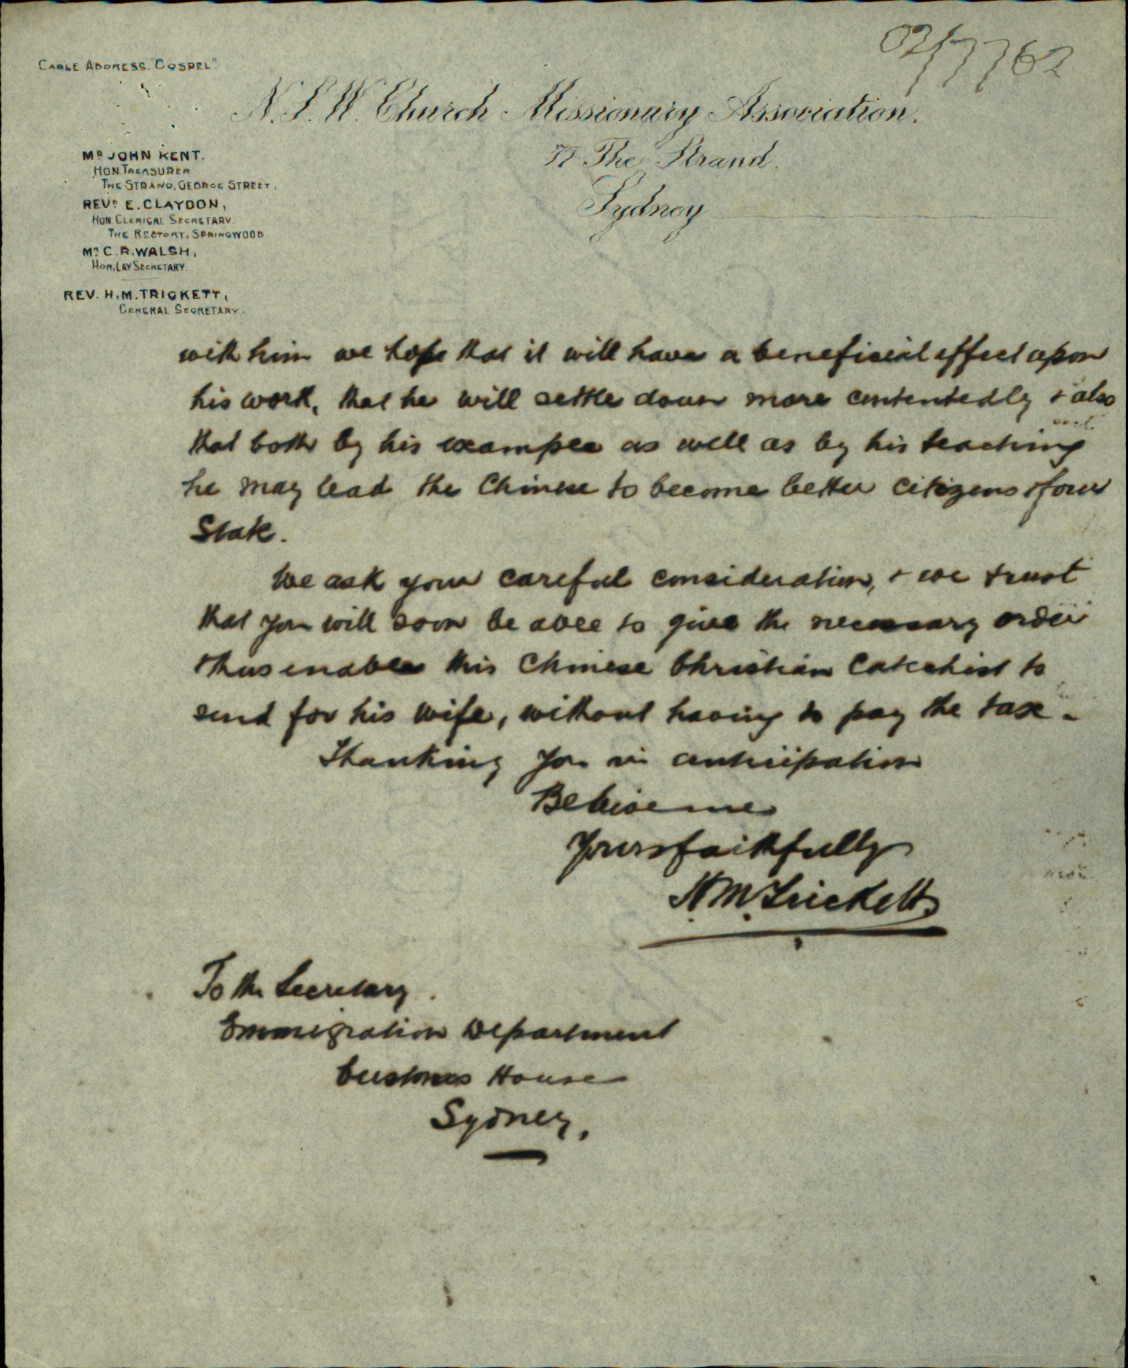 02/7762
CABLE ADDRESS "GOSPEL"
N.S.W. Church Missionary Association.
77 The Strand.
Sydney
MR JOHN KENT.
HON. TREASURER
THE STRAND, GEORGE STREET.
REVD E. CLAYDON,
HON CLERICAL SECRETARY.
THE RECTORY, SPRINGWOOD
MR C. R. WALSH,
HON. LAY SECRETARY.
REV. H. M. TRICKETT,
GENERAL SECRETARY.
with him we hope that it will have a beneficial effect upon
his work, that he will settle down more contentedly & also
that both by his example as well as by his teaching
he may lead the Chinese to become better citizens of our
State.
We ask your careful consideration, & we trust
that you will soon be able to give the necessary order
& thus enable this Chinese Christian Catechist to
send for his wife, without having to pay the tax.
Thanking you in anticipation
Believe me
Yours faithfully
H. M. Trickett
To the Secretary.
Emmigration Department
Customs House
Sydney.